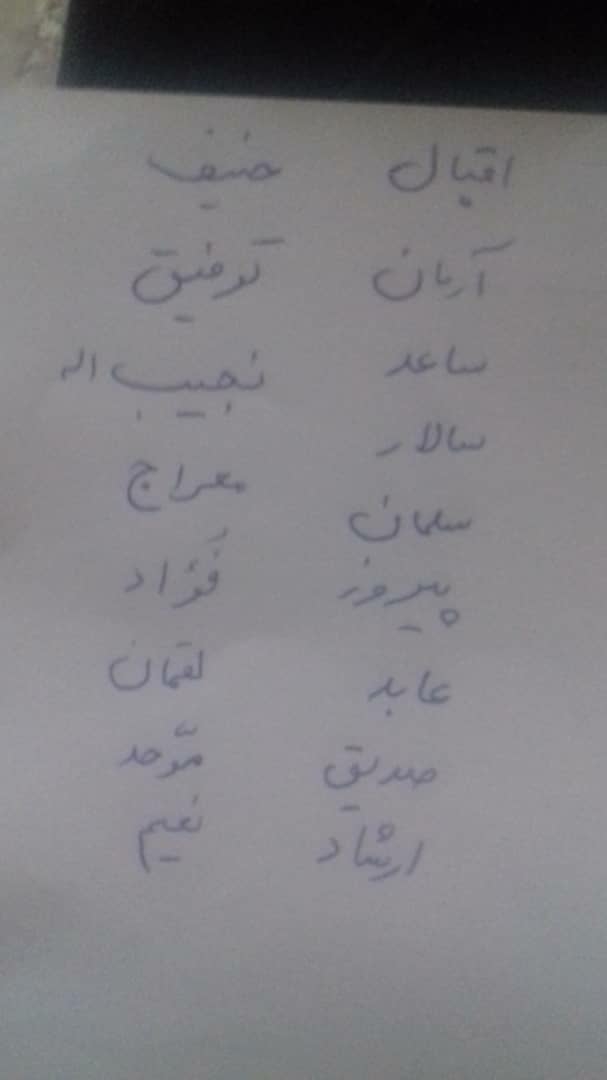 اقبال حنیف
آریان توفیق
ساعد نجیب اله
سالار معراج
سلمان فُؤاد
پیروز لقمان
عابد موّحد
صدیق نعیم
ارشاد